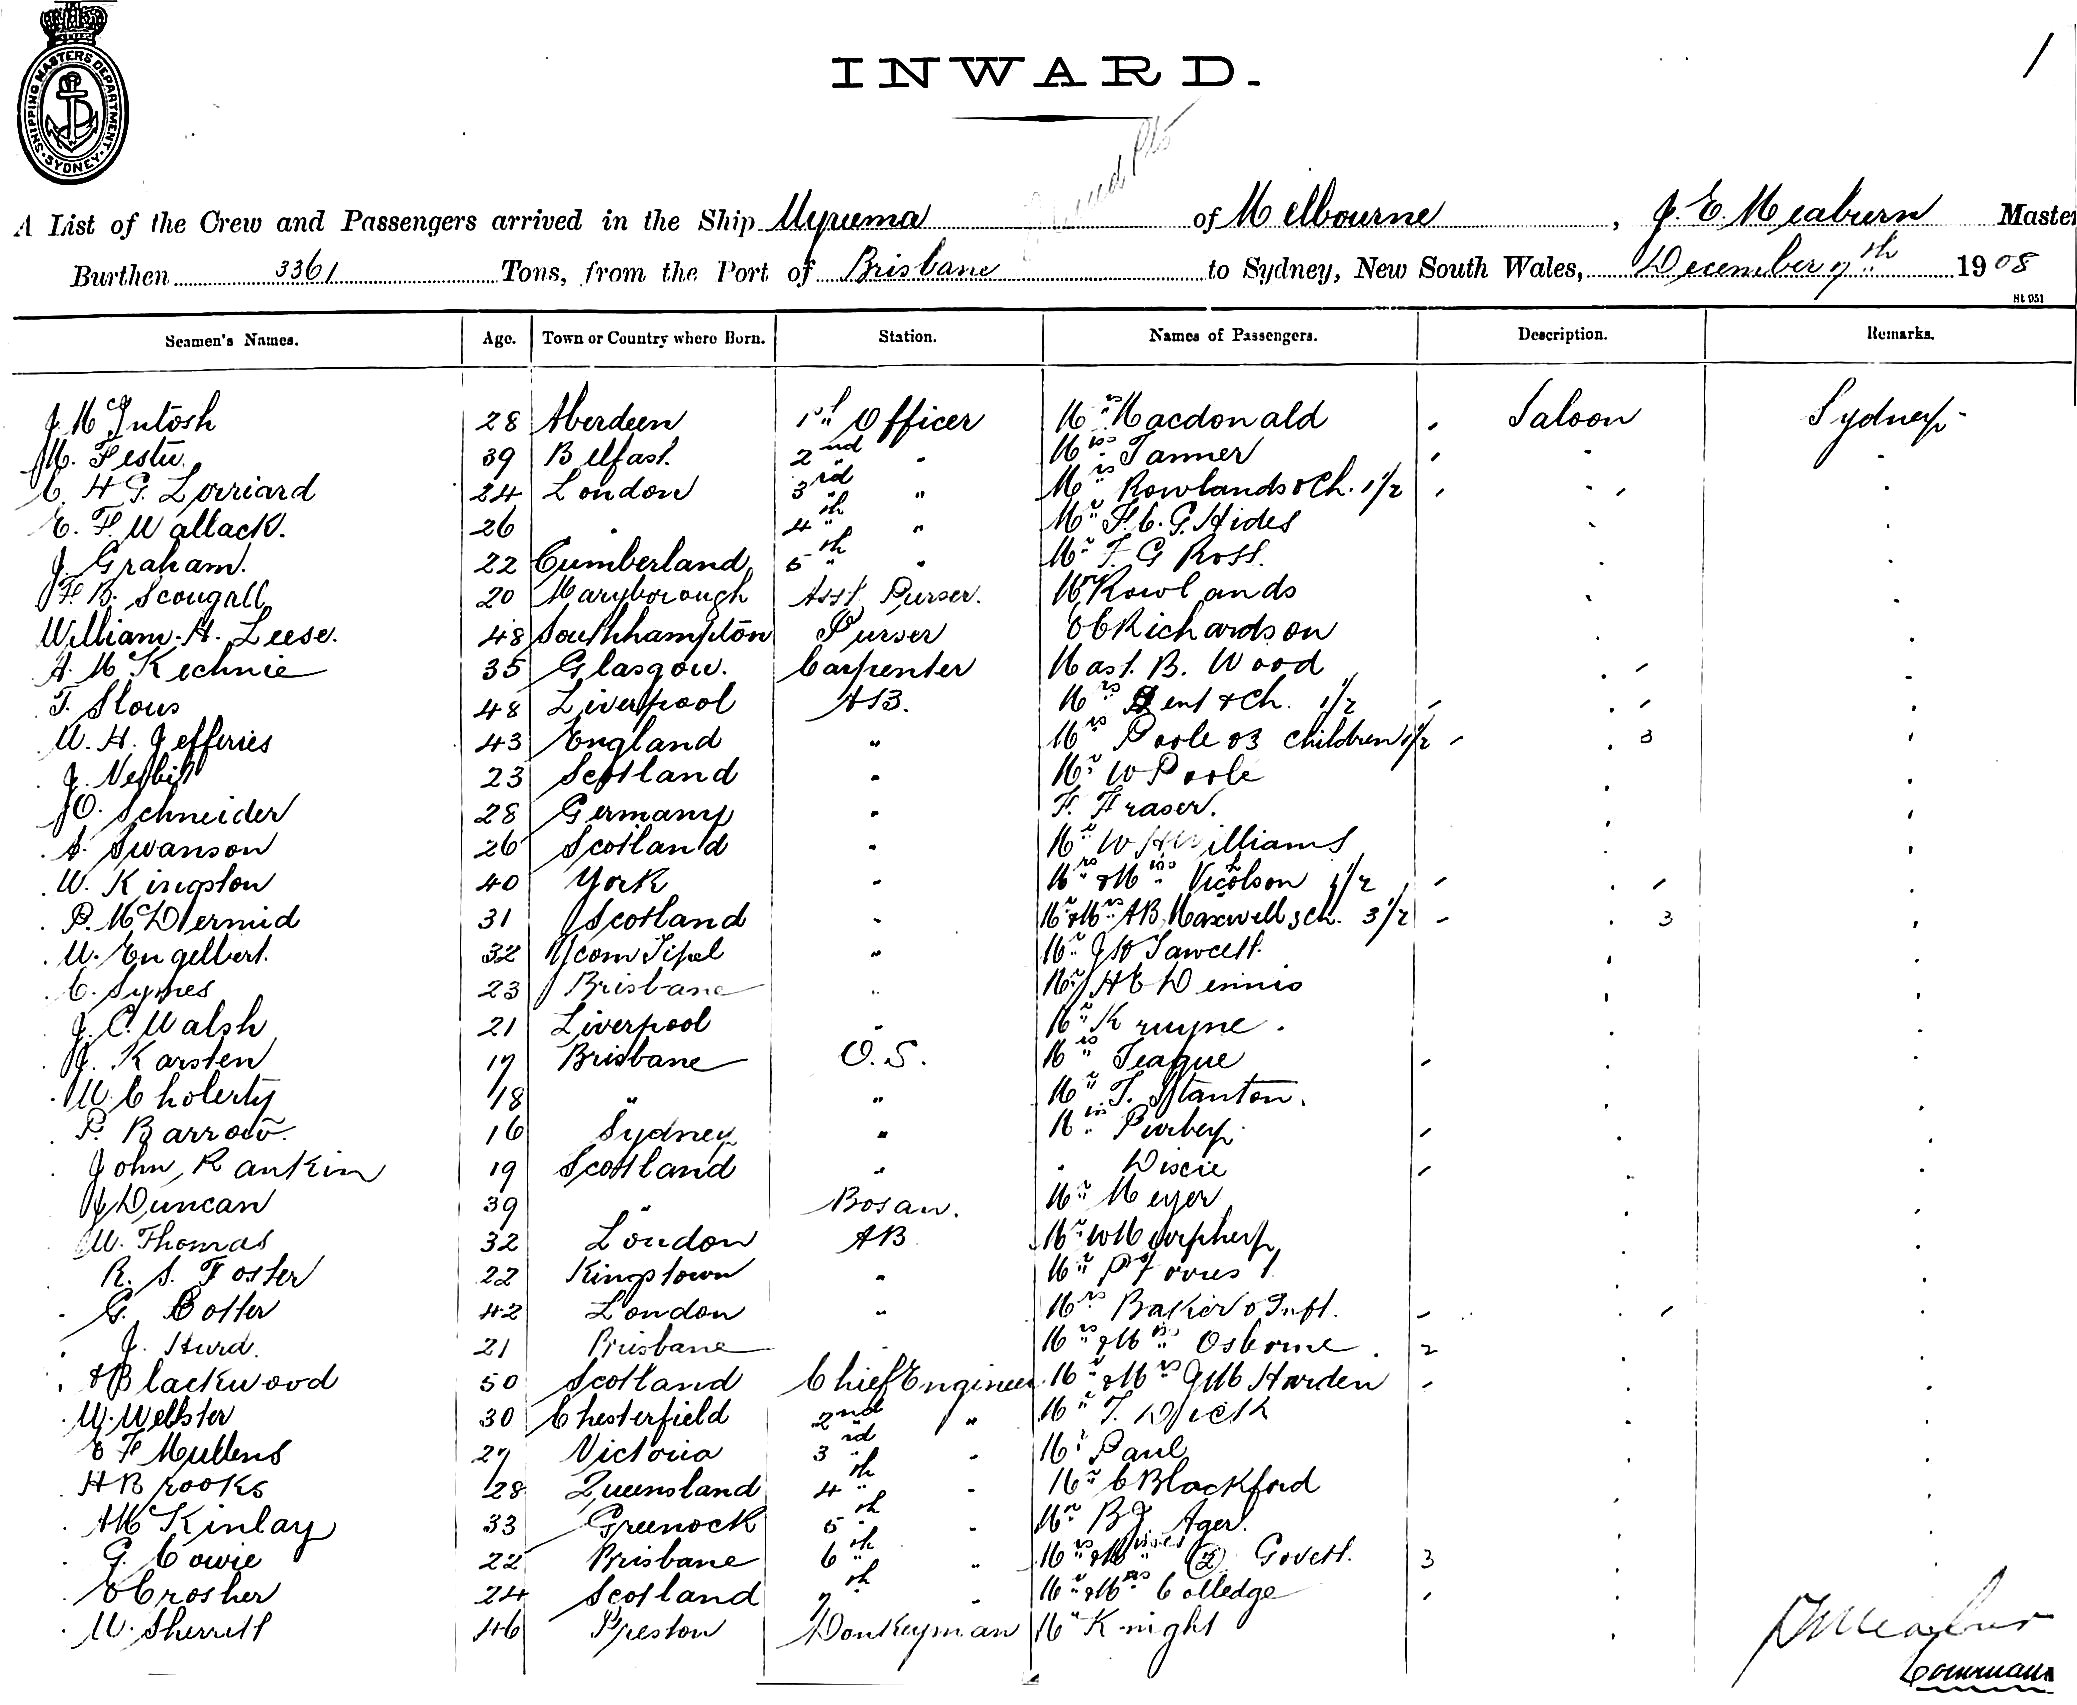 SHIPPING MASTERS DEPARTMENT
SYDNEY
INWARD.
1
A List of the Crew and Passengers arrived in the Ship Wyreema of Melbourne, J. E. Meaburn Master
Burthen 3361 Tons, from the Port of Brisbane to Sydney, New South Wales, December 7th 1908
St 951
Seamen's Names. Age. Town or Country where Born. Station. Names of Passengers. Description. Remarks.
J McIntosh 28 Aberdeen 1st Officer Mrs Macdonald Saloon Sydney
39 Belfast 2nd " Miss Tanner
C. H G. Lorriard 24 London 3rd " Mrs Rowlands & Ch. 1 1/2
E. F. Wallack. 26 " 4th " Mr F. C. G. Hides
J. Graham. 22 Cumberland 5th " Mr T. G Ross.
F. B. Scougall 20 Maryborough Asst Purser. Mr Rowlands
William. H. Leese. 48 Southhampton Purser C Richardson
A. McKechnie 35 Glasgow. Carpenter Mast. B. Wood
T. Slous 48 Liverpool AB. Mrs Dent & Ch. 1/2
W. H. Jefferies 43 England " Mrs Poole & 3 children 1 1/2 3
J. Nesbit 23 Scotland " Mr W Poole
O. Schneider 28 Germany " F. Fraser.
A. Swanson 26 Scotland " Mr W H Williams
W. Kingston 40 York " Mrs & Miss Nicolson 1/2
P. McDermid 31 Scotland " Mr & Mrs AB Maxwell 3 Ch. 3 1/2 3
W. Engelbert. 32 " Mr J W Fawcett.
C. Symes 23 Brisbane " Mr H E Dennis
J. C. Walsh 21 Liverpool " Mr Kruyne.
J. Karsten 17 Brisbane O. S. Mrs Teague
W. Choherty 18 " " Mr T. Stanton.
P. Barrow. 16 Sydney " Miss Purbey
John Rankin 19 Scotland " " Dixie
J Duncan 39 " Bosan. Mr Meyer
W. Thomas 32 London AB Mr W Murphy
R. S. Foster 22 Kingstown " Mr P
G. Cotter 42 London " Mrs Baker & Inft.
J. Hurd. 21 Brisbane Mrs & Miss Osborne. 2
Blackwood 50 Scotland Chief Engineer Mr & Mrs G M Harden
W. Webster 30 Chesterfield 2nd " Mr T. Dick
E F Mullens 27 Victoria 3rd " Mr Paul
H Brooks 28 Queensland 4th " Mr C Blackford
A McKinlay 33 Greenock 5th " Mr B J. Ager.
G. Cowie 22 Brisbane 6th " Mrs & Misses (2) Govett. 3
Crosher 24 Scotland 7th " Mr & Mrs Colledge
W. Sherritt 46 Preston Donkeyman Mr Knight
J E Meaburn